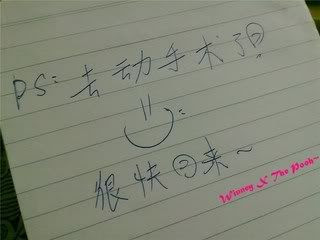 PS: 去动手术了!
很快回来~
Winney X The Pooh~